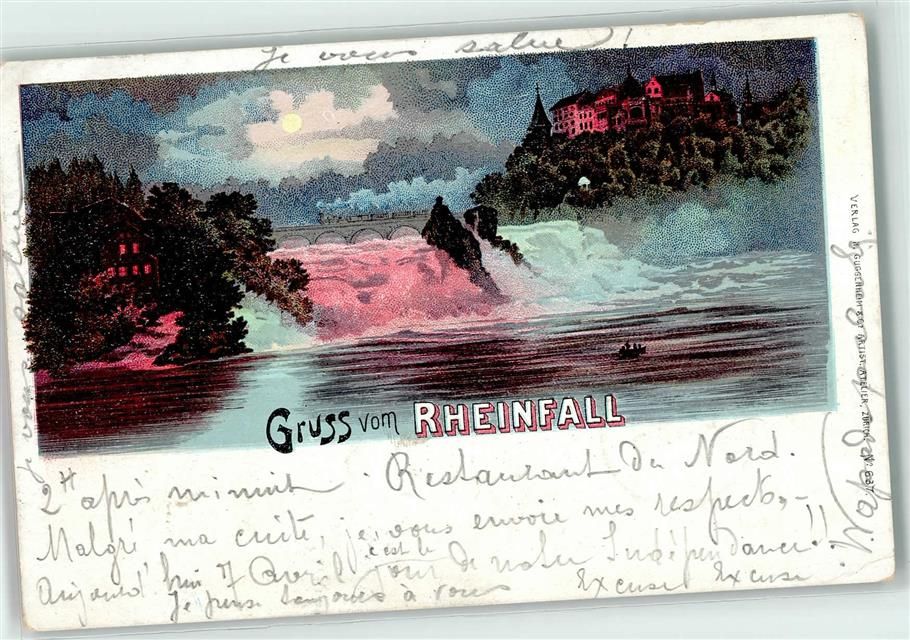 Je vous salue!
Gruss vom RHEINFALL
VERLAG H. GUGGENHEIM & Co., ARTIST. ATELIER, ZÜRICH. No. 837.
2H après minuit. Restaurant du Nord.
Malgré ma cuite, je vous envoie mes respects, -
Aujourd'hui 7 Avril c'est le jour de notre Indépendance!!
Je pense toujours à vous Excuse Excuse
je vous